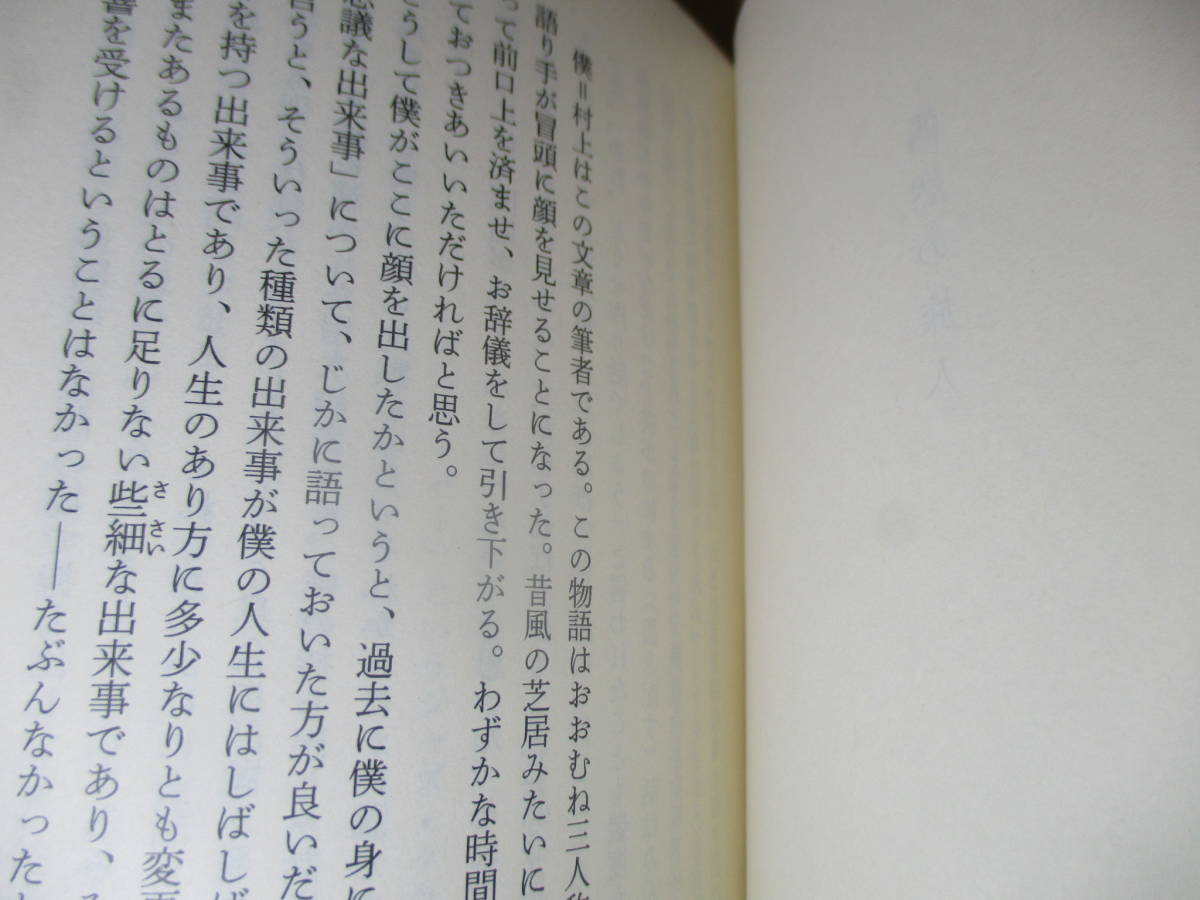 僕＝村上はこの文章の筆者である。この物語はおおむね三人称
語り手が冒頭に顔を見せることになった。昔風の芝居みたいに
って前口上を済ませ、お辞儀をして引き下がる。わずかな時間
ておつきあいいただければと思う。
うして僕がここに顔を出したかというと、過去に僕の身に
思議な出来事」について、じかに語っておいた方が良いだ
言うと、そういった種類の出来事が僕の人生にはしばしば
を持つ出来事であり、人生のあり方に多少なりとも変更
またあるものはとるに足りない些細な出来事であり、
響を受けるということはなかった――たぶんなかったと